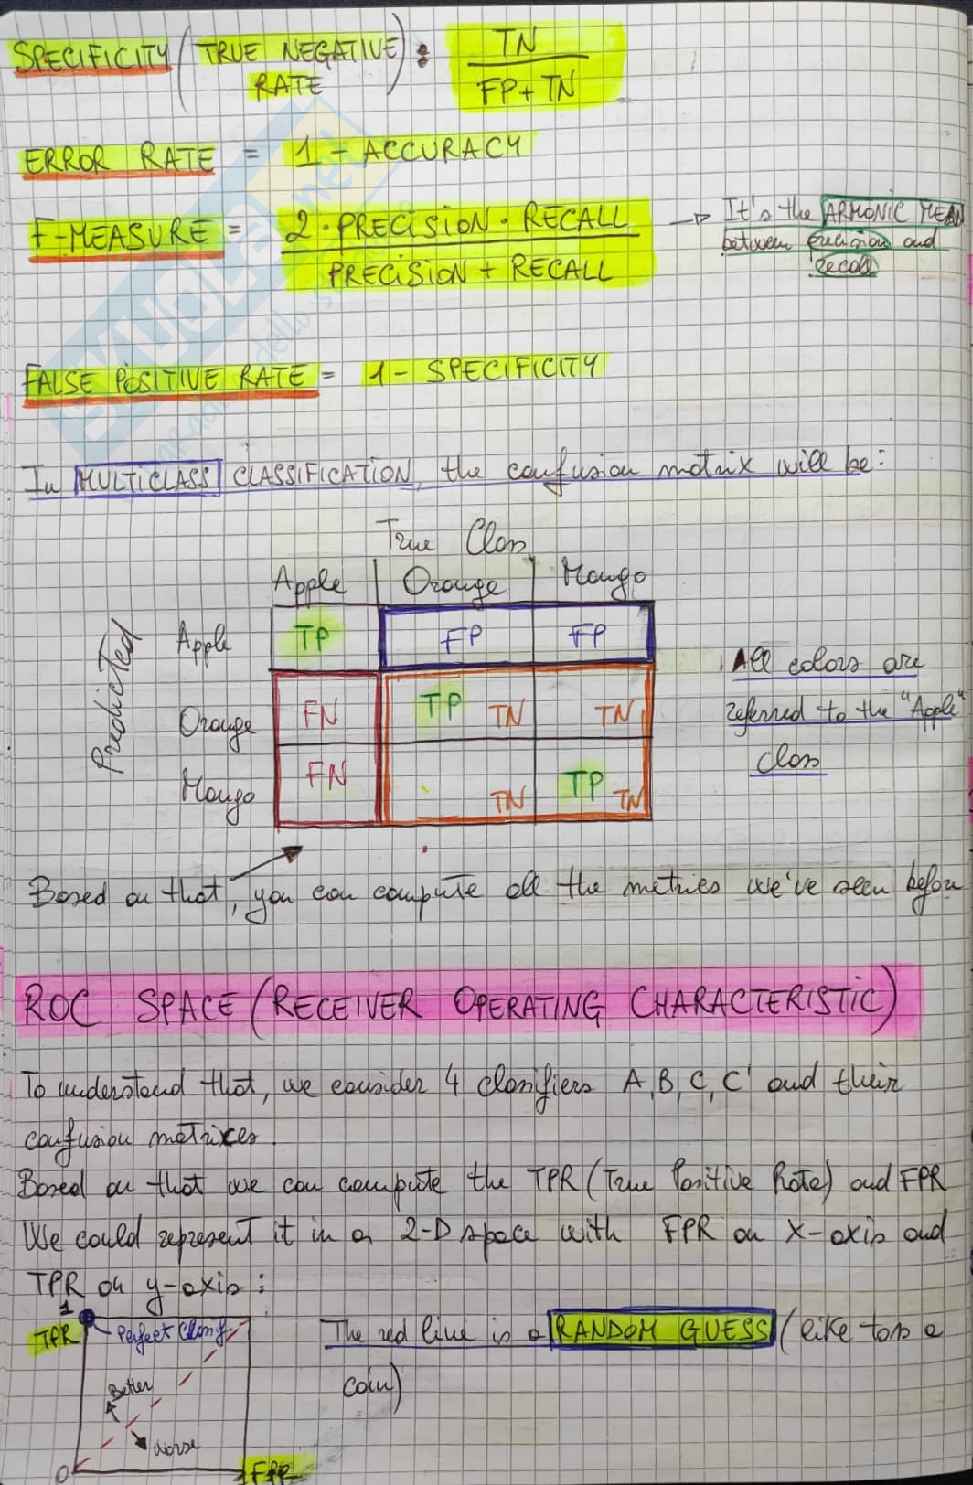 SPECIFICITY (TRUE NEGATIVE RATE) : TN / FP + TN
ERROR RATE = 1 - ACCURACY
F-MEASURE = 2 · PRECISION · RECALL / PRECISION + RECALL → It's the ARMONIC MEAN
between precision and
recall
FALSE POSITIVE RATE = 1 - SPECIFICITY
In MULTICLASS CLASSIFICATION, the confusion matrix will be:
True Class
Apple Orange Mango
Predicted
Apple TP FP FP
Orange FN TP TN TN
Mango FN TN TP TN
All colors are
referred to the "Apple"
class
Based on that, you can compute all the metrics we've seen before
ROC SPACE (RECEIVER OPERATING CHARACTERISTIC)
To understand that, we consider 4 classifiers A, B, C, C' and their
confusion matrixes.
Based on that we can compute the TPR (True Positive Rate) and FPR
We could represent it in a 2-D space with FPR on X-axis and
TPR on y-axis :
1
TPR
Perfect Classif
Better
Worse
0
1 FPR
The red line is a RANDOM GUESS (like toss a
coin)